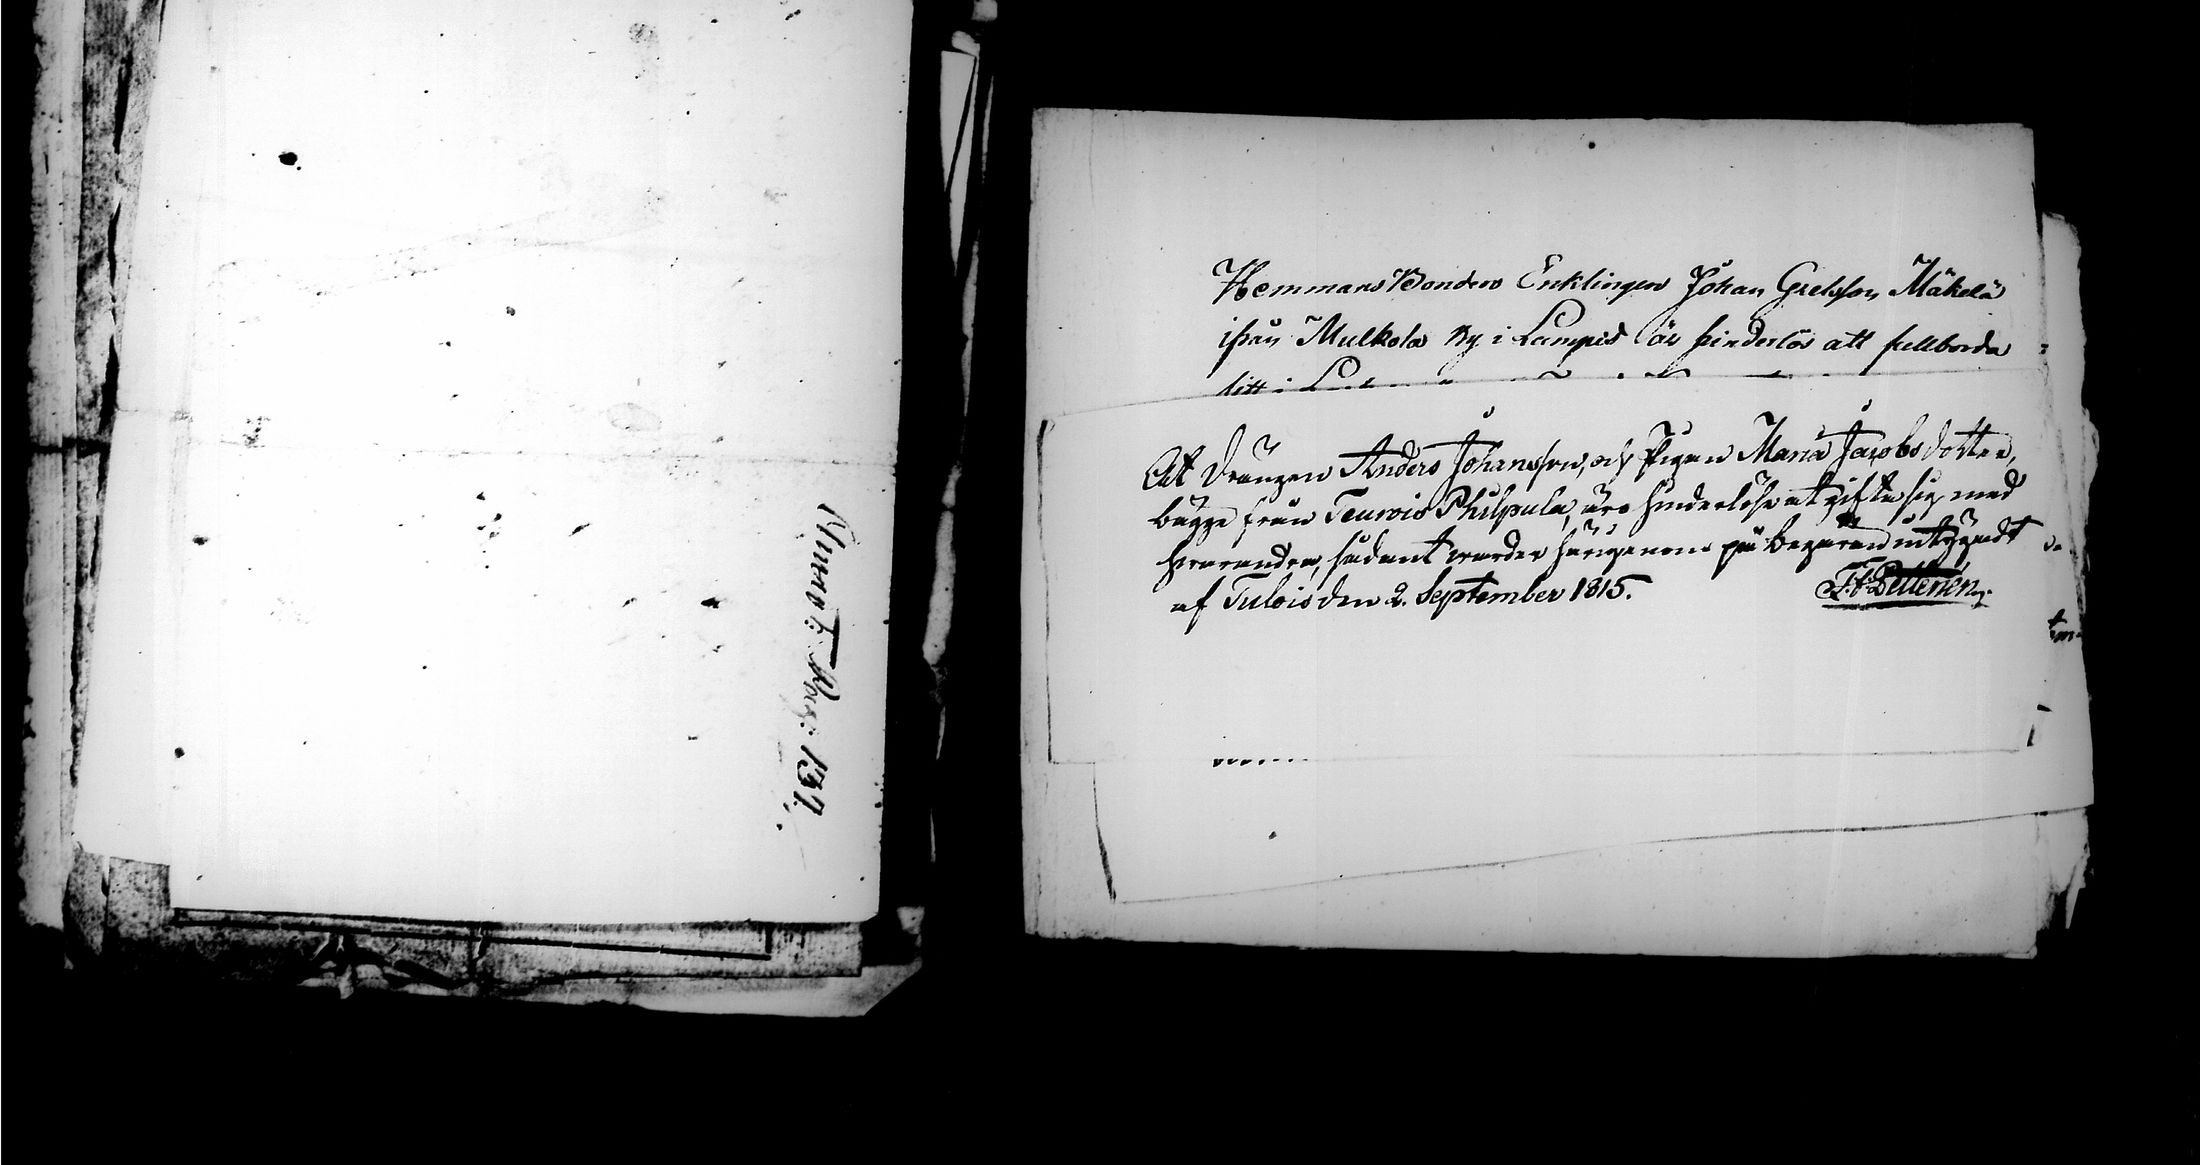 Hemmans Bonden Enklingen Johan Grelsson Mäkelä
ifrån Mulkola By i Lampis är hinderlös att fullborda
sitt i
Att Drängen Anders Johansson, och Pigan Maria Jacobsdotter,
bägge från Teurois Philpula, äro hinderlöse at gifta sig med
hvarandra, sådant warder härigenom på begäran intygadt
af Tulois den 2. September 1815.
137.